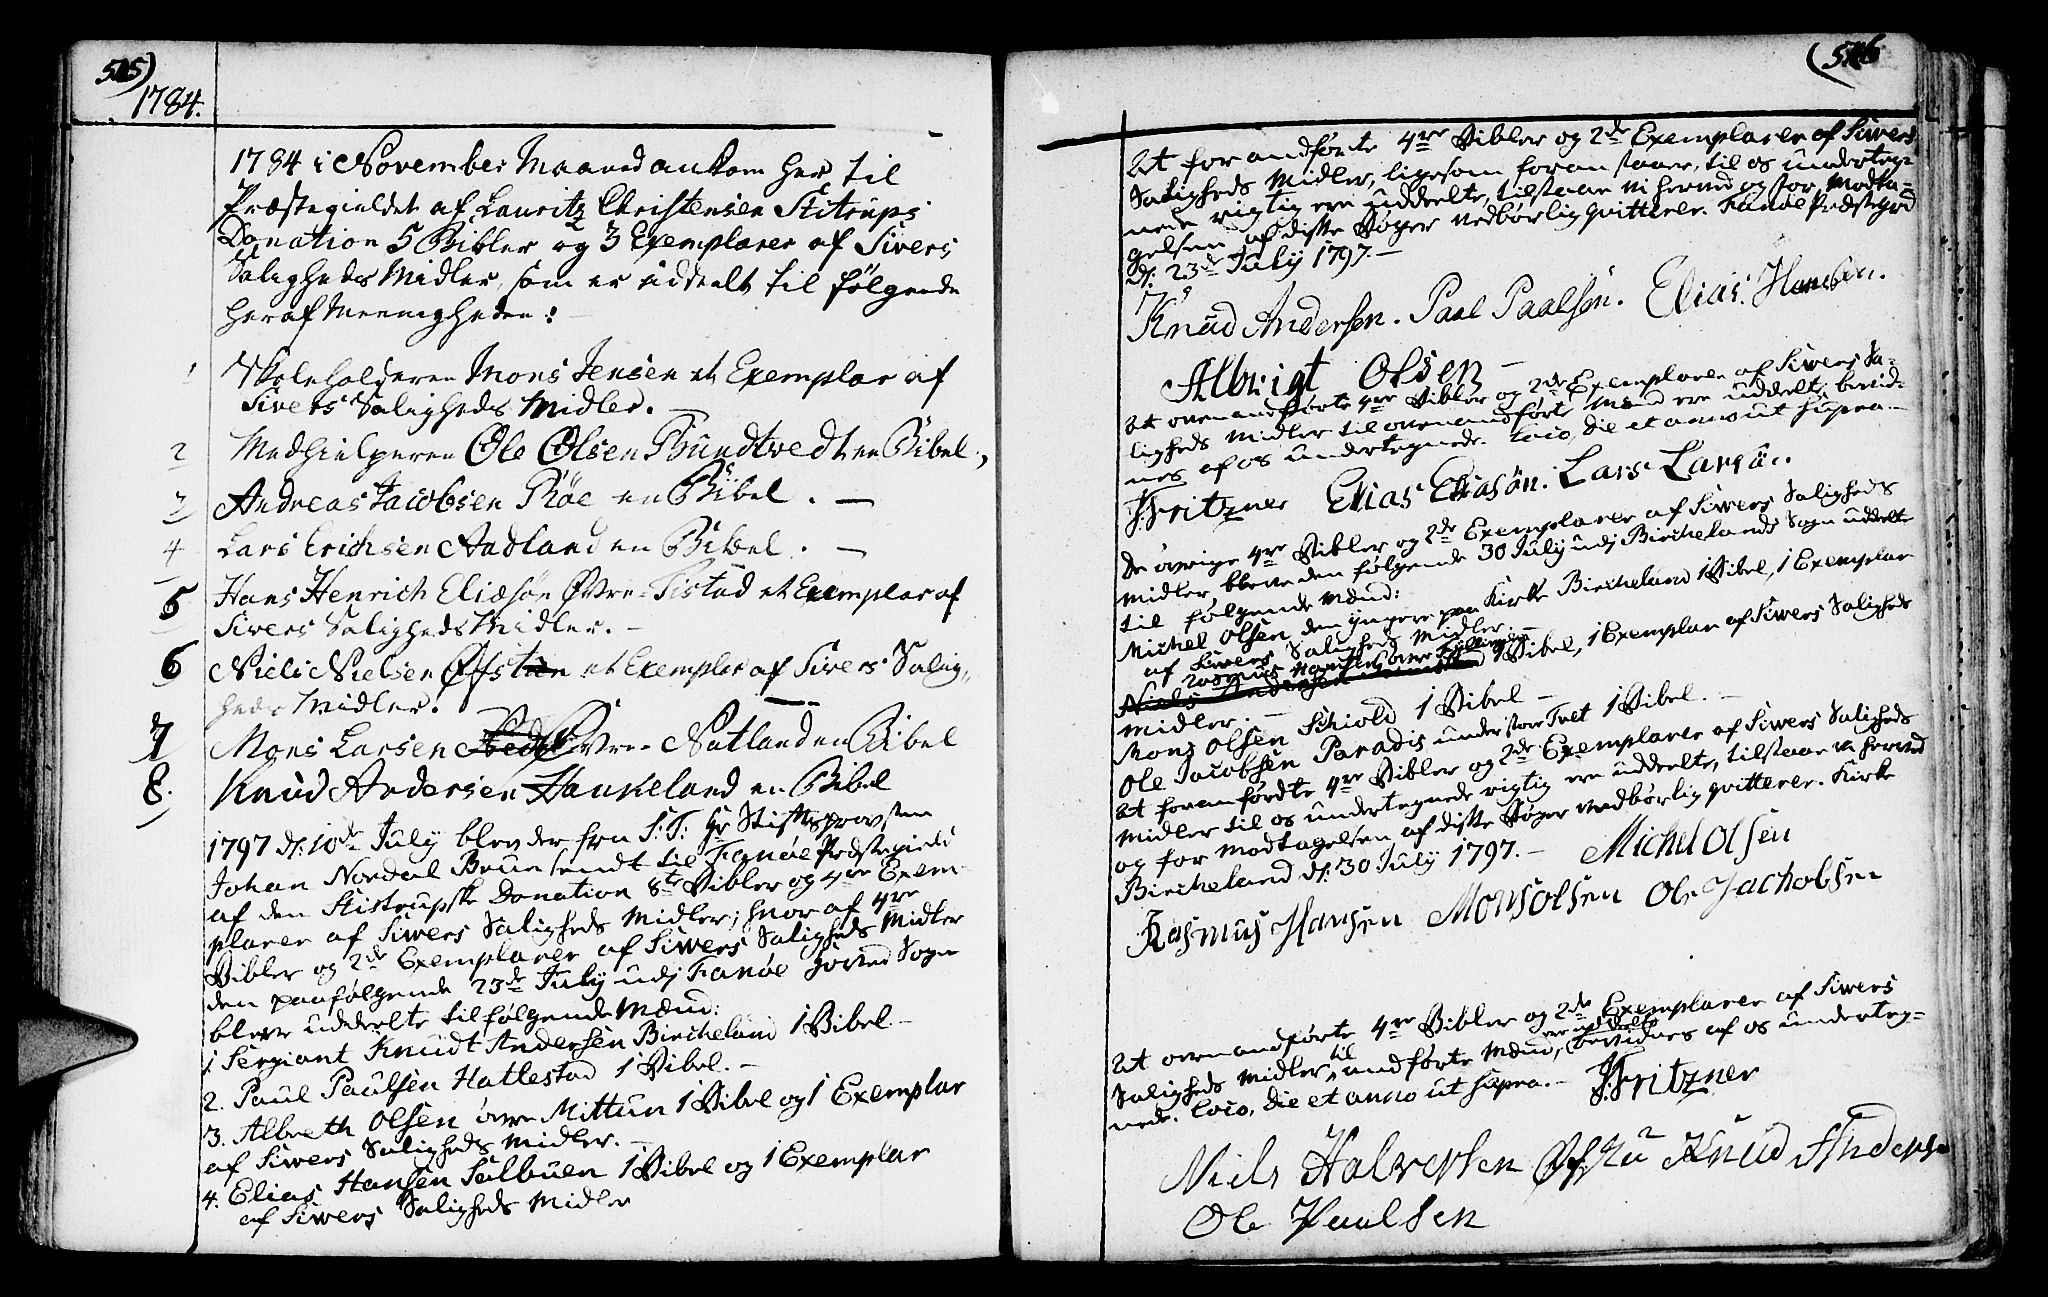 515)
1784.
1784 i November Maaned ankom her til
Præstegieldet af Lauritz Christensen Stitrups
Donation 5 Bibler og 3 Exemplarer af Sivers
Saligheds Midler, som er uddeelt til følgende
her af Meenigheden:
1 Skoleholderen Mons Jensen et Exemplar af
Sivers Saligheds Midler. —
2 Medhielperen Ole Olsen Bundtvedt en Bibel,
3 Andreas Jacobsen Røe en Bibel. —
4 Lars Erichsen Aadland en Bibel. —
5 Hans Henrich Eliæsøn Øvre-Tistad et Exemplar af
Sivers Saligheds Midler. —
6 Niels Nielsen et Exemplar af Sivers Salig-
heds Midler. —
7 Mons Larsen Øvre Natland en Bibel
8. Knud Andersen Haukeland en Bibel
1797 d: 10de July blev der fra S: T: Hr Stiftsprovsten
Johan Nordal Brun sendt til Fanøe Præstegield
af den Stistrupske Donation 8te Bibler og 4re Exem-
plarer af Siwers Saligheds Midler; hvor af 4re
Bibler og 2de Exemplarer af Siwers Saligheds Midler
den paafølgende 23de July udj Fanøe Hoved Sogn
bleve uddeelte til følgende Mænd:
1. Sergiant Knudt Andersen Bircheland 1 Bibel —
2. Paul Paulsen Hatlestad 1 Bibel. —
3. Albreth Olsen øvre Mittun 1 Bibel og 1 Exemplar
af Siwers Saligheds Midler. —
4. Elias Hansen Sælbuen 1 Bibel og 1 Exemplar
af Siwers Saligheds Midler
(516
At foranførte 4re Bibler og 2de Exemplarer af Siwers
Saligheds Midler, ligesom foran staaer, til os underteg-
nede rigtig ere uddeelte, tilstaae vi herved og for Modta-
gelsen af disse Bøger vedbørlig qvitterer. Fanøe Præstegrd
d: 23de July 1797. —
Knud Andersen. Paal Paalsen. Elias Hansen.
Albrigt Olsen —
At ovenanførte 4re Bibler og 2de Exemplarer af Siwers Sa-
ligheds Midler til ovenanførte Mænd ere uddeelt, bevid-
nes af os undertegnede. Loco, die et anno ut supra. —
Fritzner Elias Eliasøn. Lars Larsøn.
De øvrige 4re Bibler og 2de Exemplarer af Siwers Saligheds
Midler, bleve den følgende 30 July udj Birchelands Sogn uddeelte
til følgende Mænd:
Michel Olsen den yngere paa Kirke Bircheland 1 Bibel, 1 Exemplar
af Siwers Saligheds Midler. —
Rasmus Hansen øvre
Niels Andersen 1 Bibel, 1 Exemplar af Siwers Saligheds
Midler. —
Mons Olsen Schiold 1 Bibel —
Ole Jacobsen Paradis under store Tvet 1 Bibel. —
At foranførdte 4re Bibler og 2de Exemplarer af Siwers Saligheds
Midler til os undertegnede rigtig ere uddeelte, tilstaae vi herved
og for Modtagelsen af disse Bøger vedbørlig qvitterer. Kirke
Bircheland d: 30 July 1797. — Michel Olsen
Rasmus Hansen Mons Olsen Ole Jachobsen
At ovenanførte 4re Bibler og 2de Exemplarer af Siwers
Saligheds Midler, til andførte Mænd, ere uddeelte bevidnes af os underteg-
nede. Loco, die et anno ut supra. — Fritzner
Niels Halversen Knud Anders
Ole Paulsen